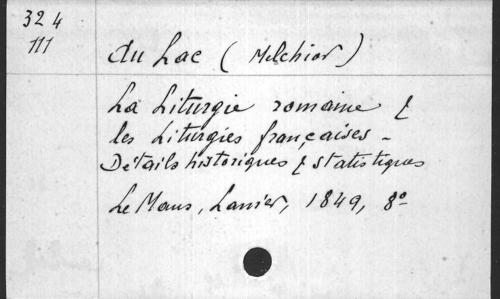 324
111
du Lac ( Melchior )
La Liturgie romaine &
les Liturgies françaises _
Détails historiques & statistiques
Le Mans, Lanier, 1849, 8º